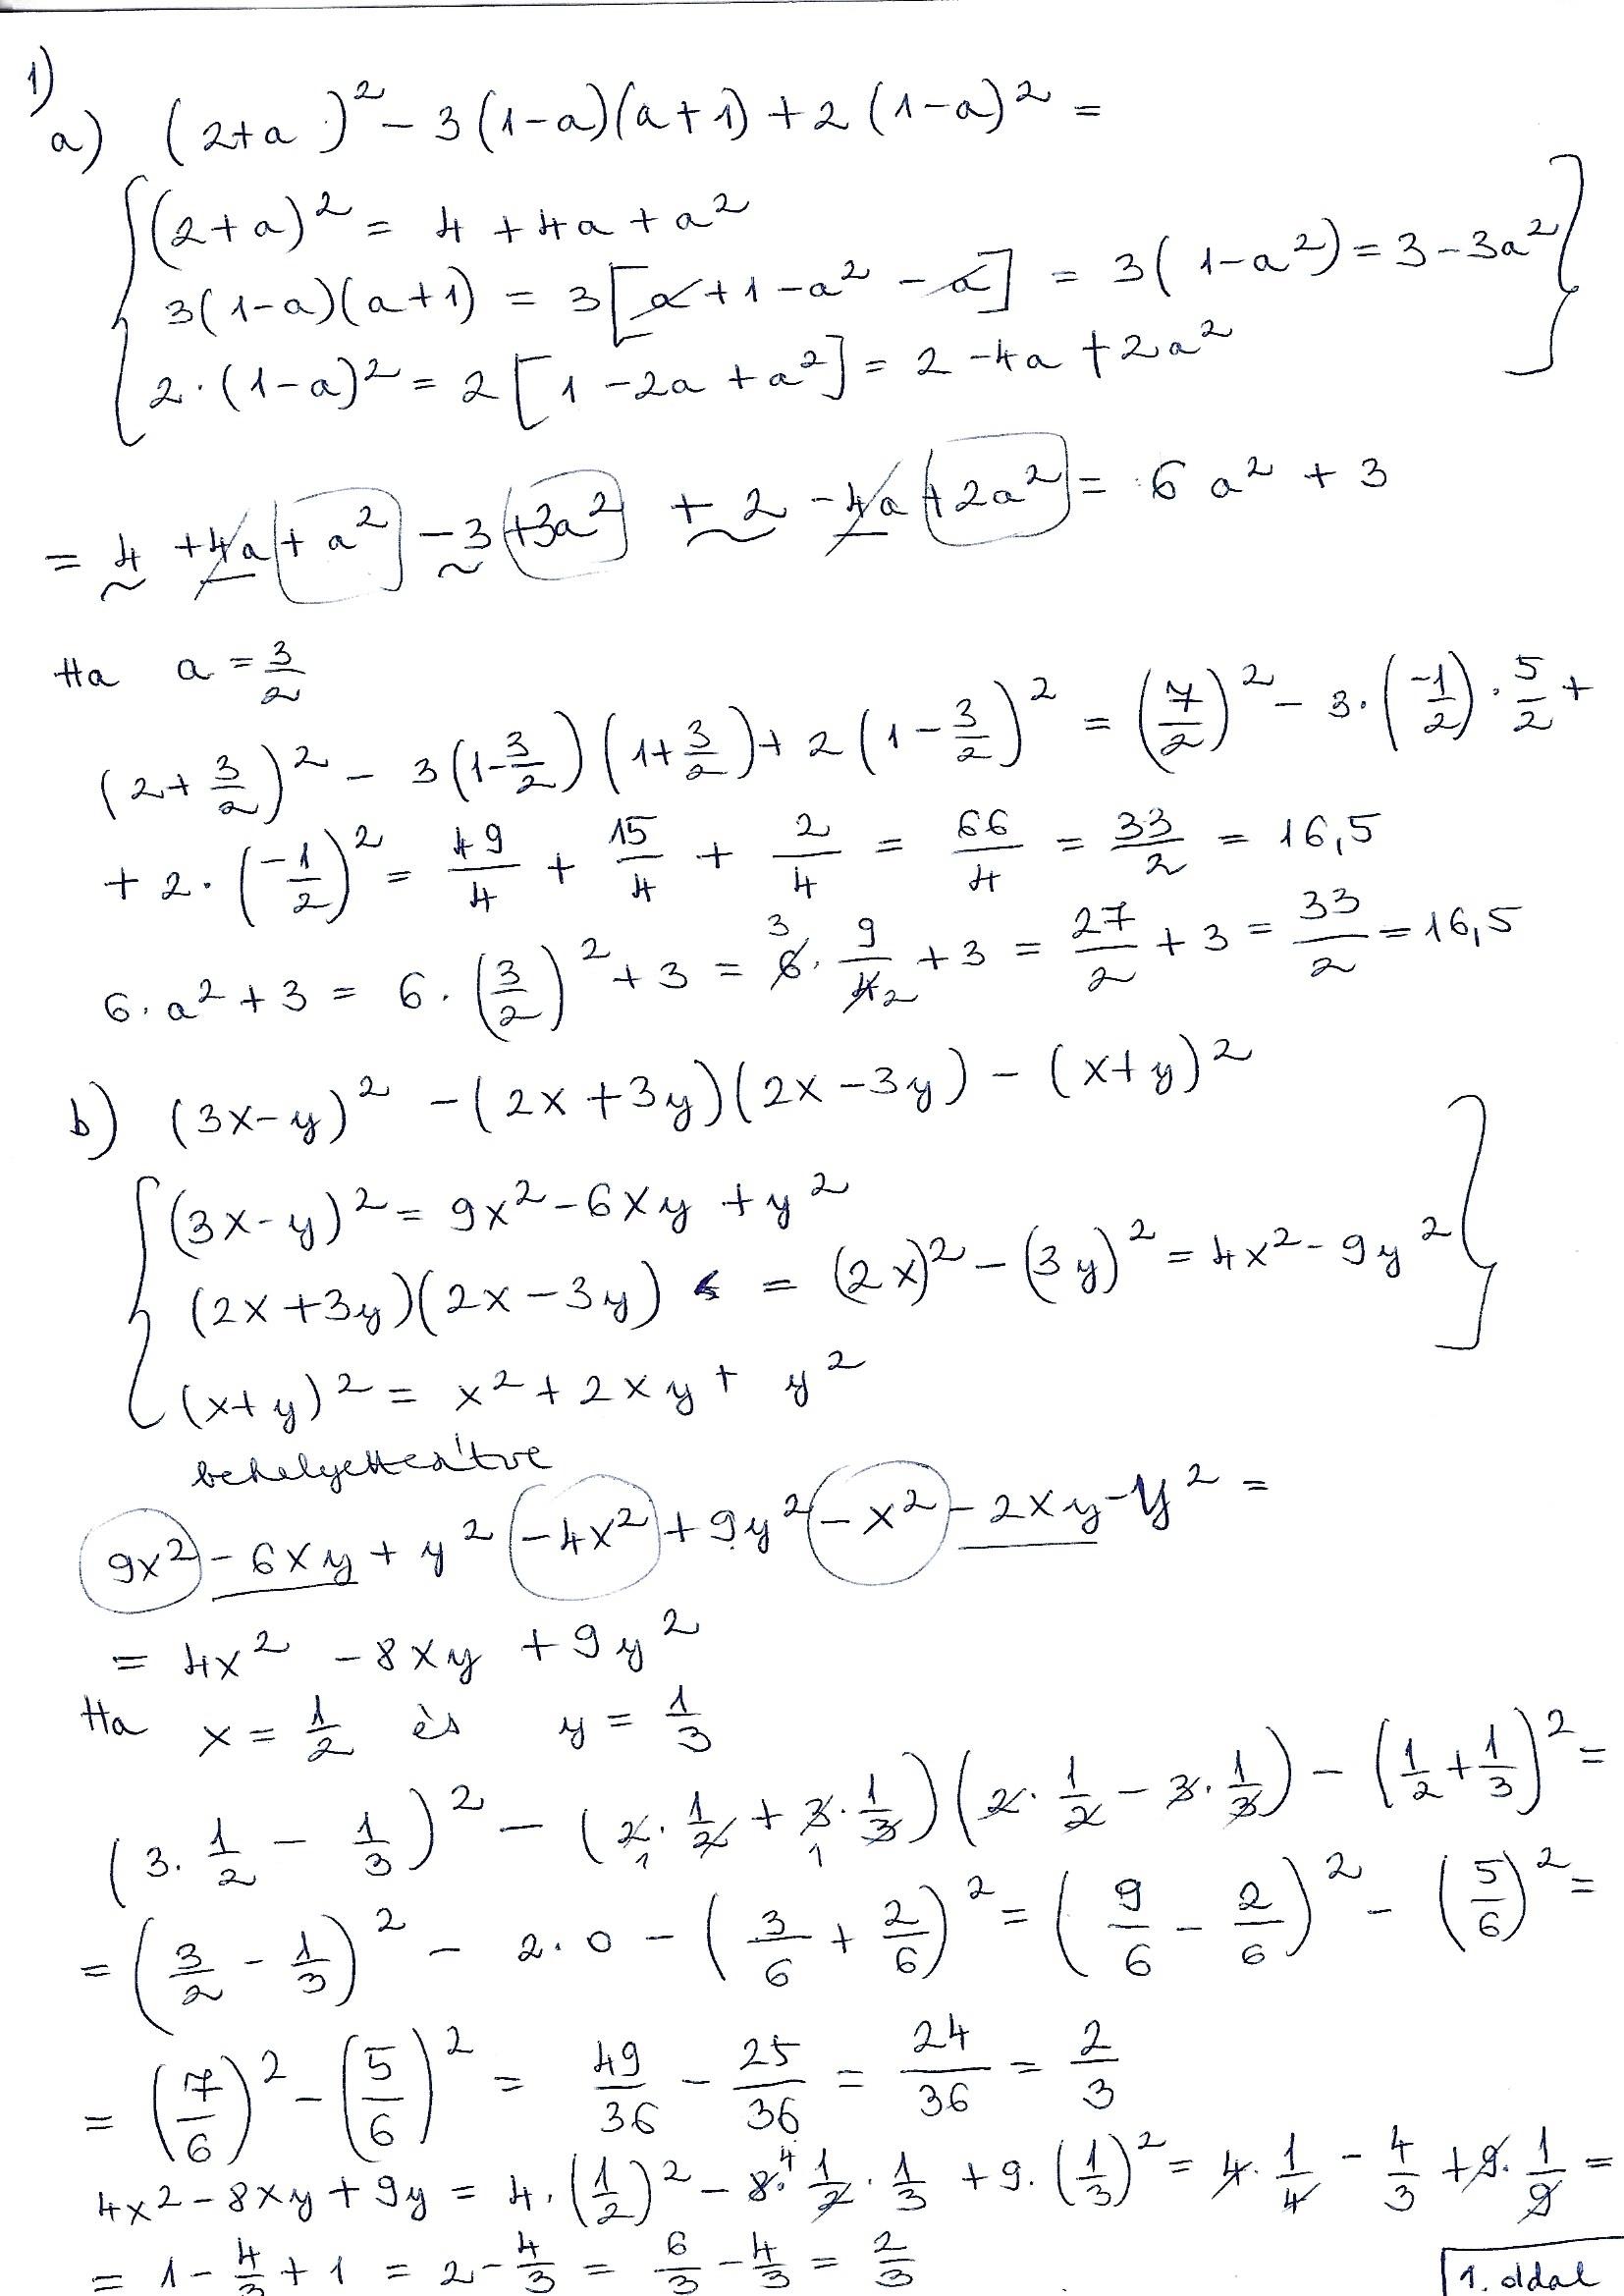 1)
a) (2+a)² - 3(1-a)(a+1) + 2(1-a)² =
(2+a)² = 4 + 4a + a²
3(1-a)(a+1) = 3[a + 1 - a² - a] = 3(1-a²) = 3 - 3a²
2·(1-a)² = 2[1 - 2a + a²] = 2 - 4a + 2a²
= 4 + 4a + a² - 3 + 3a² + 2 - 4a + 2a² = 6a² + 3
Ha a = 3/2
(2+3/2)² - 3(1-3/2)(1+3/2) + 2(1-3/2)² = (7/2)² - 3·(-1/2)·5/2 +
+ 2·(-1/2)² = 49/4 + 15/4 + 2/4 = 66/4 = 33/2 = 16,5
6·a² + 3 = 6·(3/2)² + 3 = 6 3·9/4 2 + 3 = 27/2 + 3 = 33/2 = 16,5
b) (3x-y)² - (2x+3y)(2x-3y) - (x+y)²
(3x-y)² = 9x² - 6xy + y²
(2x+3y)(2x-3y) = (2x)² - (3y)² = 4x² - 9y²
(x+y)² = x² + 2xy + y²
behelyettesítve
9x² - 6xy + y² - 4x² + 9y² - x² - 2xy - y² =
= 4x² - 8xy + 9y²
Ha x = 1/2 és y = 1/3
(3·1/2 - 1/3)² - (2·1/2 1 + 3·1/3 1)(2·1/2 - 3·1/3) - (1/2 + 1/3)² =
= (3/2 - 1/3)² - 2·0 - (3/6 + 2/6)² = (9/6 - 2/6)² - (5/6)² =
= (7/6)² - (5/6)² = 49/36 - 25/36 = 24/36 = 2/3
4x² - 8xy + 9y = 4·(1/2)² - 8·4 1/2·1/3 + 9·(1/3)² = 4·1/4 - 4/3 + 9·1/9 =
= 1 - 4/3 + 1 = 2 - 4/3 = 6/3 - 4/3 = 2/3
1. oldal